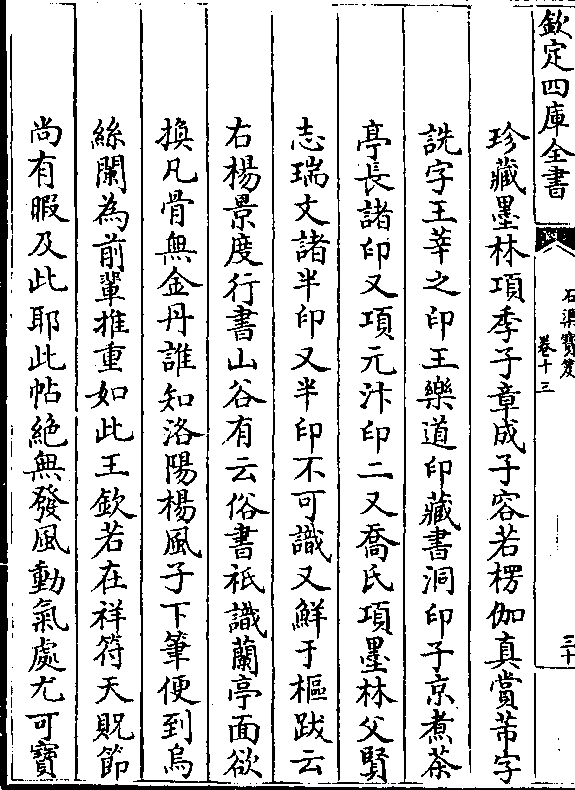 欽定四庫全書
石渠寳笈
卷十三
三十
珍藏墨林項季子章成子容若楞伽真賞芾字
詵字王莘之印王樂道印藏書洞印子京煮茶
亭長諸印又項元汴印二又喬氏項墨林父賢
志瑞文諸半印又半印不可識又鮮于樞跋云
右楊景度行書山谷有云俗書祇識蘭亭面欲
換凡骨無金丹誰知洛陽楊風子下筆便到烏
絲闌為前輩推重如此王欽若在祥符天貺節
尚有暇及此耶此帖絶無發風動氣處尤可寶